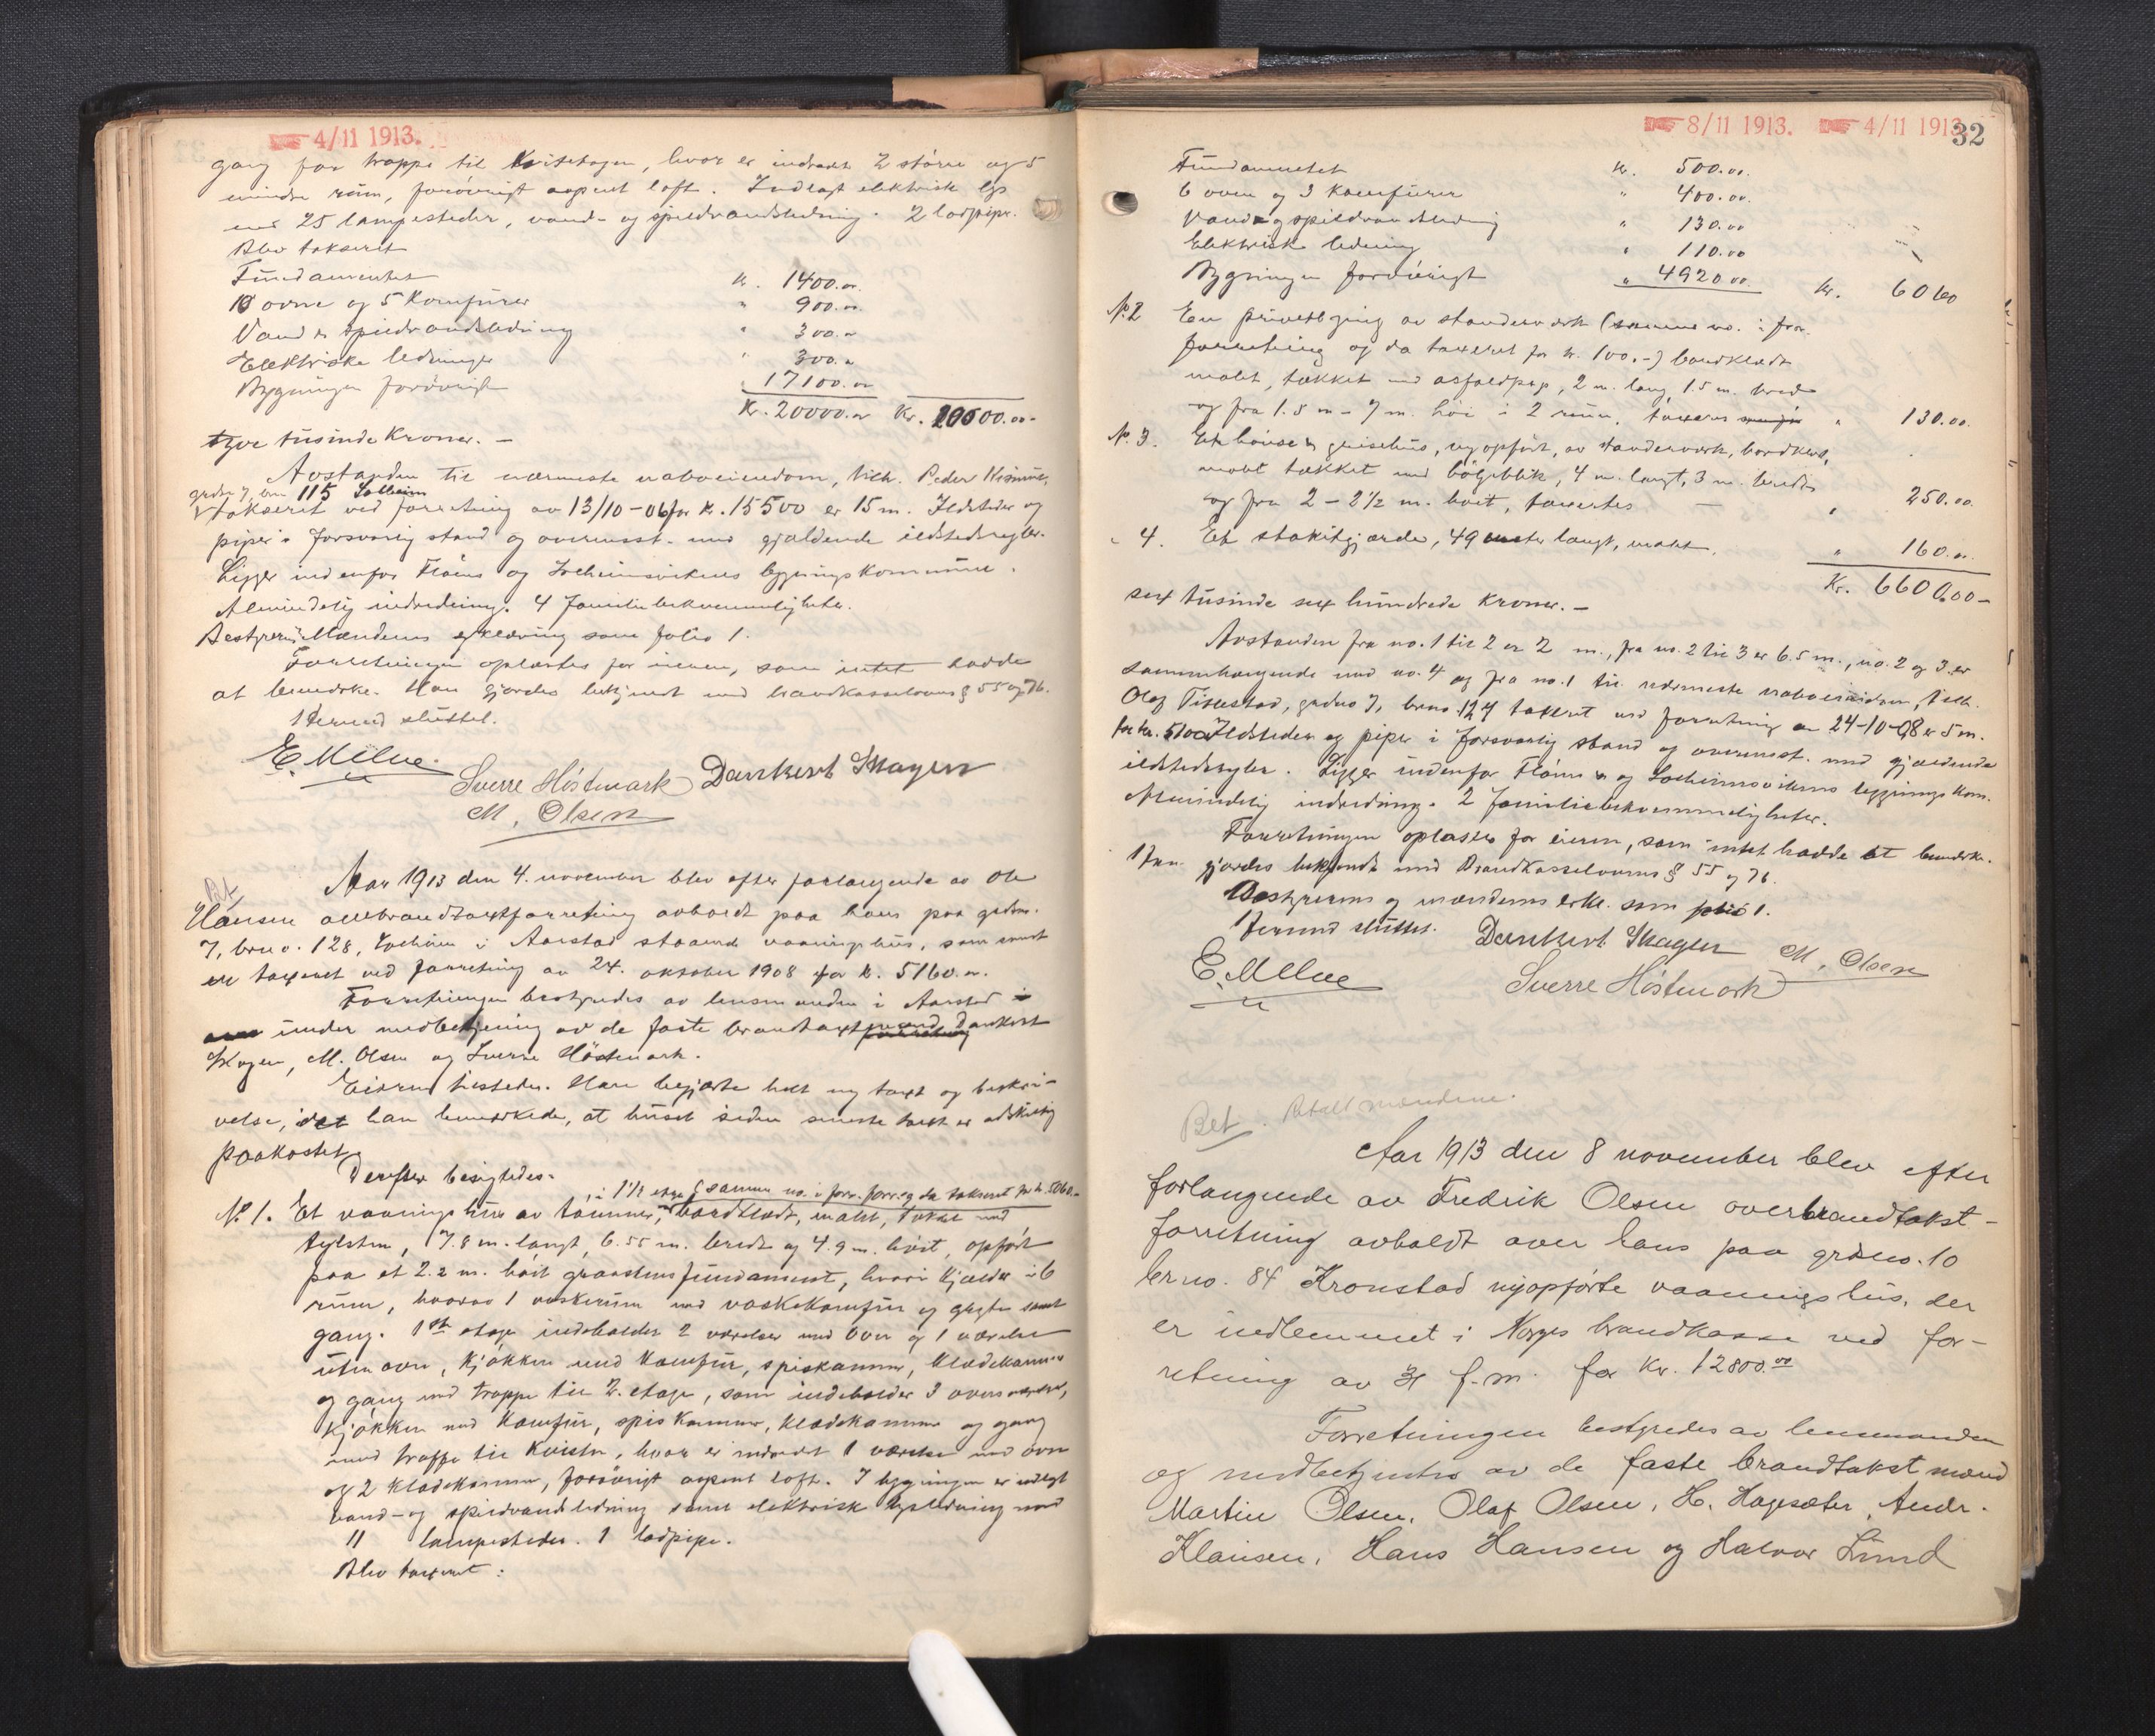 4/11 1913.
gang for trappe til Kvistetagen, hvor er indredet 2 större og 5
mindre rum, forövrigt aapent loft. Indlagt elektrisk lys
med 25 lampesteder, vand- og spildvandsledning. 2 lodpiper.
Blev takseret
Fundamentet kr. 1400.00
10 ovne og 5 Komfürer " 900.00
Vand & spildvandsledning " 300.00
Elektriske ledninger " 300.00
Bygningen forövrigt " 17100.00
Kr. 20000.00 Kr. 20000.00-
tyve tüsinde Kroner. -
Avstanden til nærmeste naboeiendom, tilh. Peder
grdno 7, brn 115 Solheim
takseret ved forretning av 13/10-06 for kr. 15500 er 15 m. Ildsteder og
piper i forsvarlig stand og overensst. med gjældende ildstedsregler.
Ligger indenfor Flöens og Solheimsvikens bygningskommune.
Almindelig indredning. 4 familiebekvemmeligheter.
Bestyrerens Mændenes erklæring som folio 1.
Forretningen oplæstes for eieren, som intet hadde
at bemerke. Han gjordes bekjendt med brandkasselovens § 55 og 76.
Hermed slüttet.
E. Milne.
Sverre Höstmark Dankert Skagen
M. Olsen
Bet
Aar 1913 den 4. november blev efter forlangende av Ole
Hansen overbrandtaxtforretning avholdt paa hans paa grdno.
7, brno. 128, Solheim i Aarstad staaende vaaningshüs, som senest
er taxeret ved forretning av 24. oktober 1908 for kr. 5160.00.
Forretningen bestyredes av lensmanden i Aarstad
under medbetjening av de faste brandtaxtmænd Dankert
Skagen, M. Olsen og Sverre Höstmark.
Eieren tilstede. Han begjærte helt ny taxt og beskri-
velse, idet han bemerkede, at hüset siden seneste taxt er adskillig
paakostet.
Derefter besigtedes.
, i 1½ etage (samme no. i forr. forr. og da takseret for kr. 5060.-
No. 1. Et vaaningshüs av tömmer, bordklædt, malet, tækket med
tagsten, 7.8 m. langt, 6.55 m. bredt og 4.9 m. höit, opfört
paa et 2.2 m. höit graastensfundament, hvori Kjælder i 6
rüm, hvorav 1 vaskerüm med vaskekomfür og gryte samt
gang. 1ste etage indeholder 2 værelser med ovn og 1 værelse
üten ovn, kjökken med Komfür, spiskammer, klædekammer
og gang med trappe til 2. etage, som indeholder 3 ovnsværelser,
kjökken med Komfür, spiskammer, klædekammer og gang
med trappe til Kvisten, hvor er indredet 1 værelse med ovn
og 2 klædekammer, forövrigt aapent loft. I bygningen er indlagt
vand- og spildvandsledning samt elektrisk lysledning med
11 lampesteder. 1 lodpipe.
Blev taxeret:
8/11 1913. 4/11 1913.
32
Fundamentet kr. 500.00.
6 ovne og 3 Komfürer " 400.00.
Vand & spildvandsledning " 130.00
Elektrisk ledning " 110.00
Bygningen forövrigt " 4920.00. kr. 6060
No. 2 En privetbygning av standerværk (samme no. i forr.
forretning og da taxeret for kr. 100.-) bordklædt
malet, tækket med asfaltpap, 2 m. lang, 1.5 m. bred
og fra 1.8 m - 7 m. höi i 2 rüm, taxeres " 130.00.
No. 3. Et hönse & grisehüs, nyopfört, av standerværk, bordklædt,
malet tækket med bölgeblik, 4 m. langt, 3 m. bredt
og fra 2 - 2½ m. höit, taxertes - " 250.00.
" 4. Et stakitgjærde, 49 meter langt, malet. " 160.00.
Kr. 6600.00-
sex tüsinde sex hündrede Kroner. -
Avstanden fra no. 1 til 2 er 2 m., fra no. 2 til 3 er 6.5 m., no. 2 og 3 er
sammenhængende med no. 4 og fra no. 1 til nærmeste naboeiendom, tilh.
Olaf Tillestad, grdno 7, brno. 124 takseret ved forretning av 24-10-08 er 5 m.
for kr. 5100 Ildsteder og piper i forsvarlig stand og overensst. med gjældende
ildstedsregler. Ligger indenfor Flöens & og Solheimsvikens bygningskom.
Almindelig indredning. 2 familiebekvemmeligheter.
Forretningen oplæstes for eieren, som intet hadde at bemerke.
Han gjordes bekjendt med Brandkasselovens § 55 og 76.
Bestyrerens og mændenes erkl. som folio 1.
Hermed slüttet.
Dankert Skagen M. Olsen
E. Milne
Sverre Höstmark
Bet. Betalt mændene.
Aar 1913 den 8 november blev efter
forlangende av Fredrik Olsen overbrandtakst-
forretning avholdt over hans paa grdno. 10
brno. 84 Kronstad nyopförte vaaningshüs, der
er indlemmet i Norges brandkasse ved for-
retning av 31 f. m. for Kr. 12800.00
Forretningen bestyredes av lensmanden
og medbetjentes av de faste brandtakstmænd
Martin Olsen, Olaf Olsen, H. Hagesæter, Andr.
Klausen, Hans Hansen og Halvor Lünd